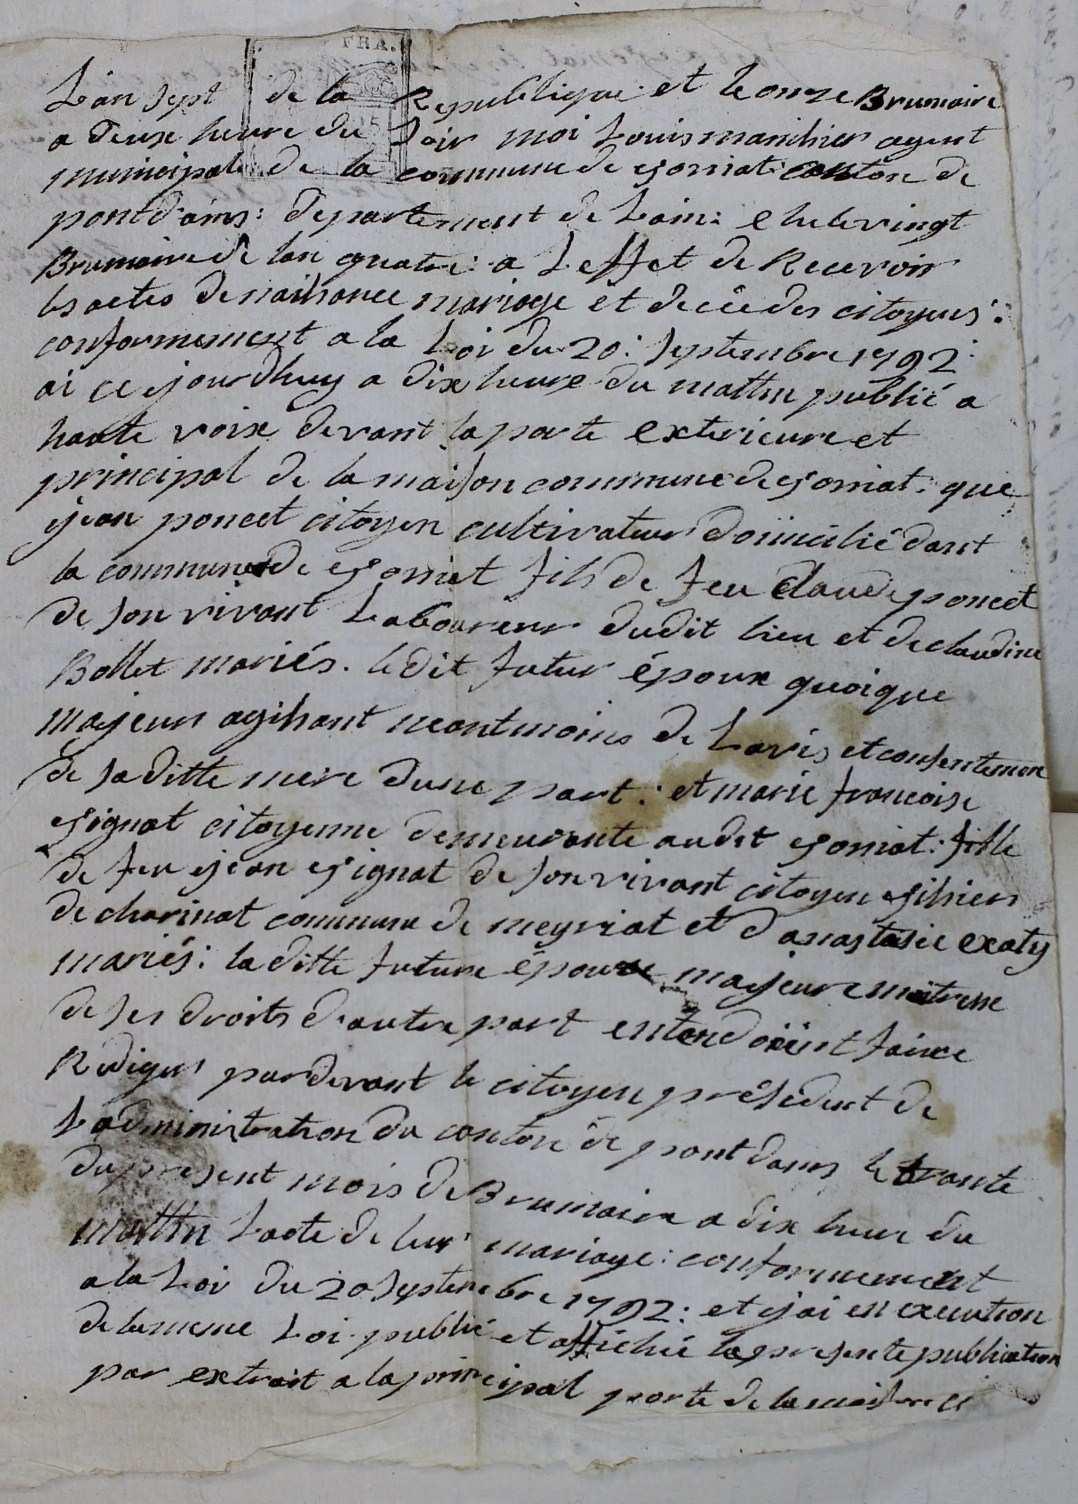 FRA.
L'an sept de la Republique et le onze Brumaire
a deux heure du soir moi Louis manihier agent
municipale de la commune de gorriat canton de
pont d'ains: departement de Lain: elu le vingt
Brumaire de lan quatre: a Leffet de Recevoir
les actes de naissance mariage et decè des citoyens:
conformement a la Loi du 20: septembre 1792:
ai ce jourdhuy a dix heure du mattin publié a
haute voix devant la porte exterieure et
principal de la maison commune de gorriat: que
jean poncet citoyen cultivateur domicilié dant
la commune de gorriat fils de feu Claude poncet
de son vivant Laboureur dudit lieu et de claudine
Bollet mariés. le dit futur époux quoique
majeur agissant neantmoins de Lavis et consentement
de sa ditte mere dune part: et marie francoise
gignat citoyenne demeurante audit gorriat: fille
de feu jean gignat de son vivant citoyen
de charinat commune de meyriat et d'anastasie exaty
mariés: la ditte future épouse majeure maitresse
de ses droits d'autre part entendoiint faire
Rediger pardevant le citoyen président de
Ladministration du canton de pont dains le trante
du present mois de Brumaire a dix heure du
mattin Lacte de leur mariage: conformement
a la Loi du 20 septembre 1792: et j'ai en execution
de la meme Loi publié et affiché la presente publication
par extrait a la principal porte de la maison